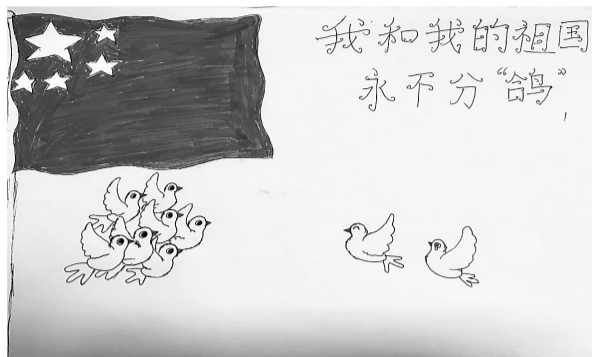 我和我的祖国
永不分“鸽”